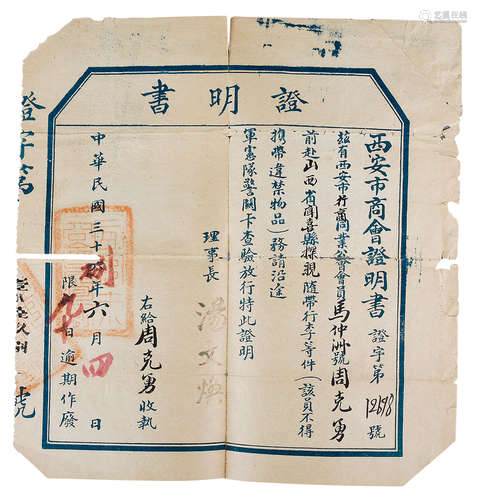 證明書
西安市商會證明書 證字第12698號
茲有西安市行商同業公會會員馬仲洲號周克勇
前赴山西省聞喜縣探親隨帶行李等件(該員不得
携帶違禁物品)務請沿途
軍憲隊警關卡查驗放行特此證明
理事長 湯文煥
右給周克勇收執
中華民國三十 年六月四日
限 日逾期作廢
證字第
號